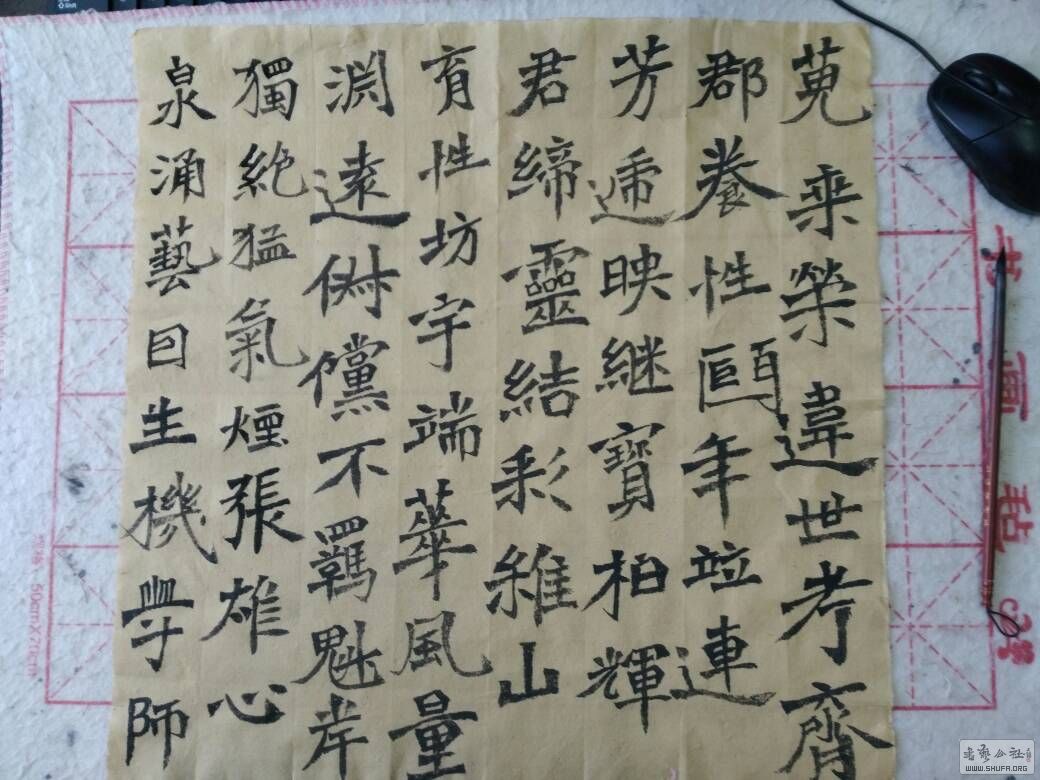 榮違世考齊
郡養性頤年竝連
芳遞映継寶柏輝
君締靈結彩維山
育性坊宇端華風量
淵遠倜儻不羈魁岸
獨絶猛氣煙張雄心
泉涌藝因生機學師
50cmX70cm
WWW.SHUFA.ORG